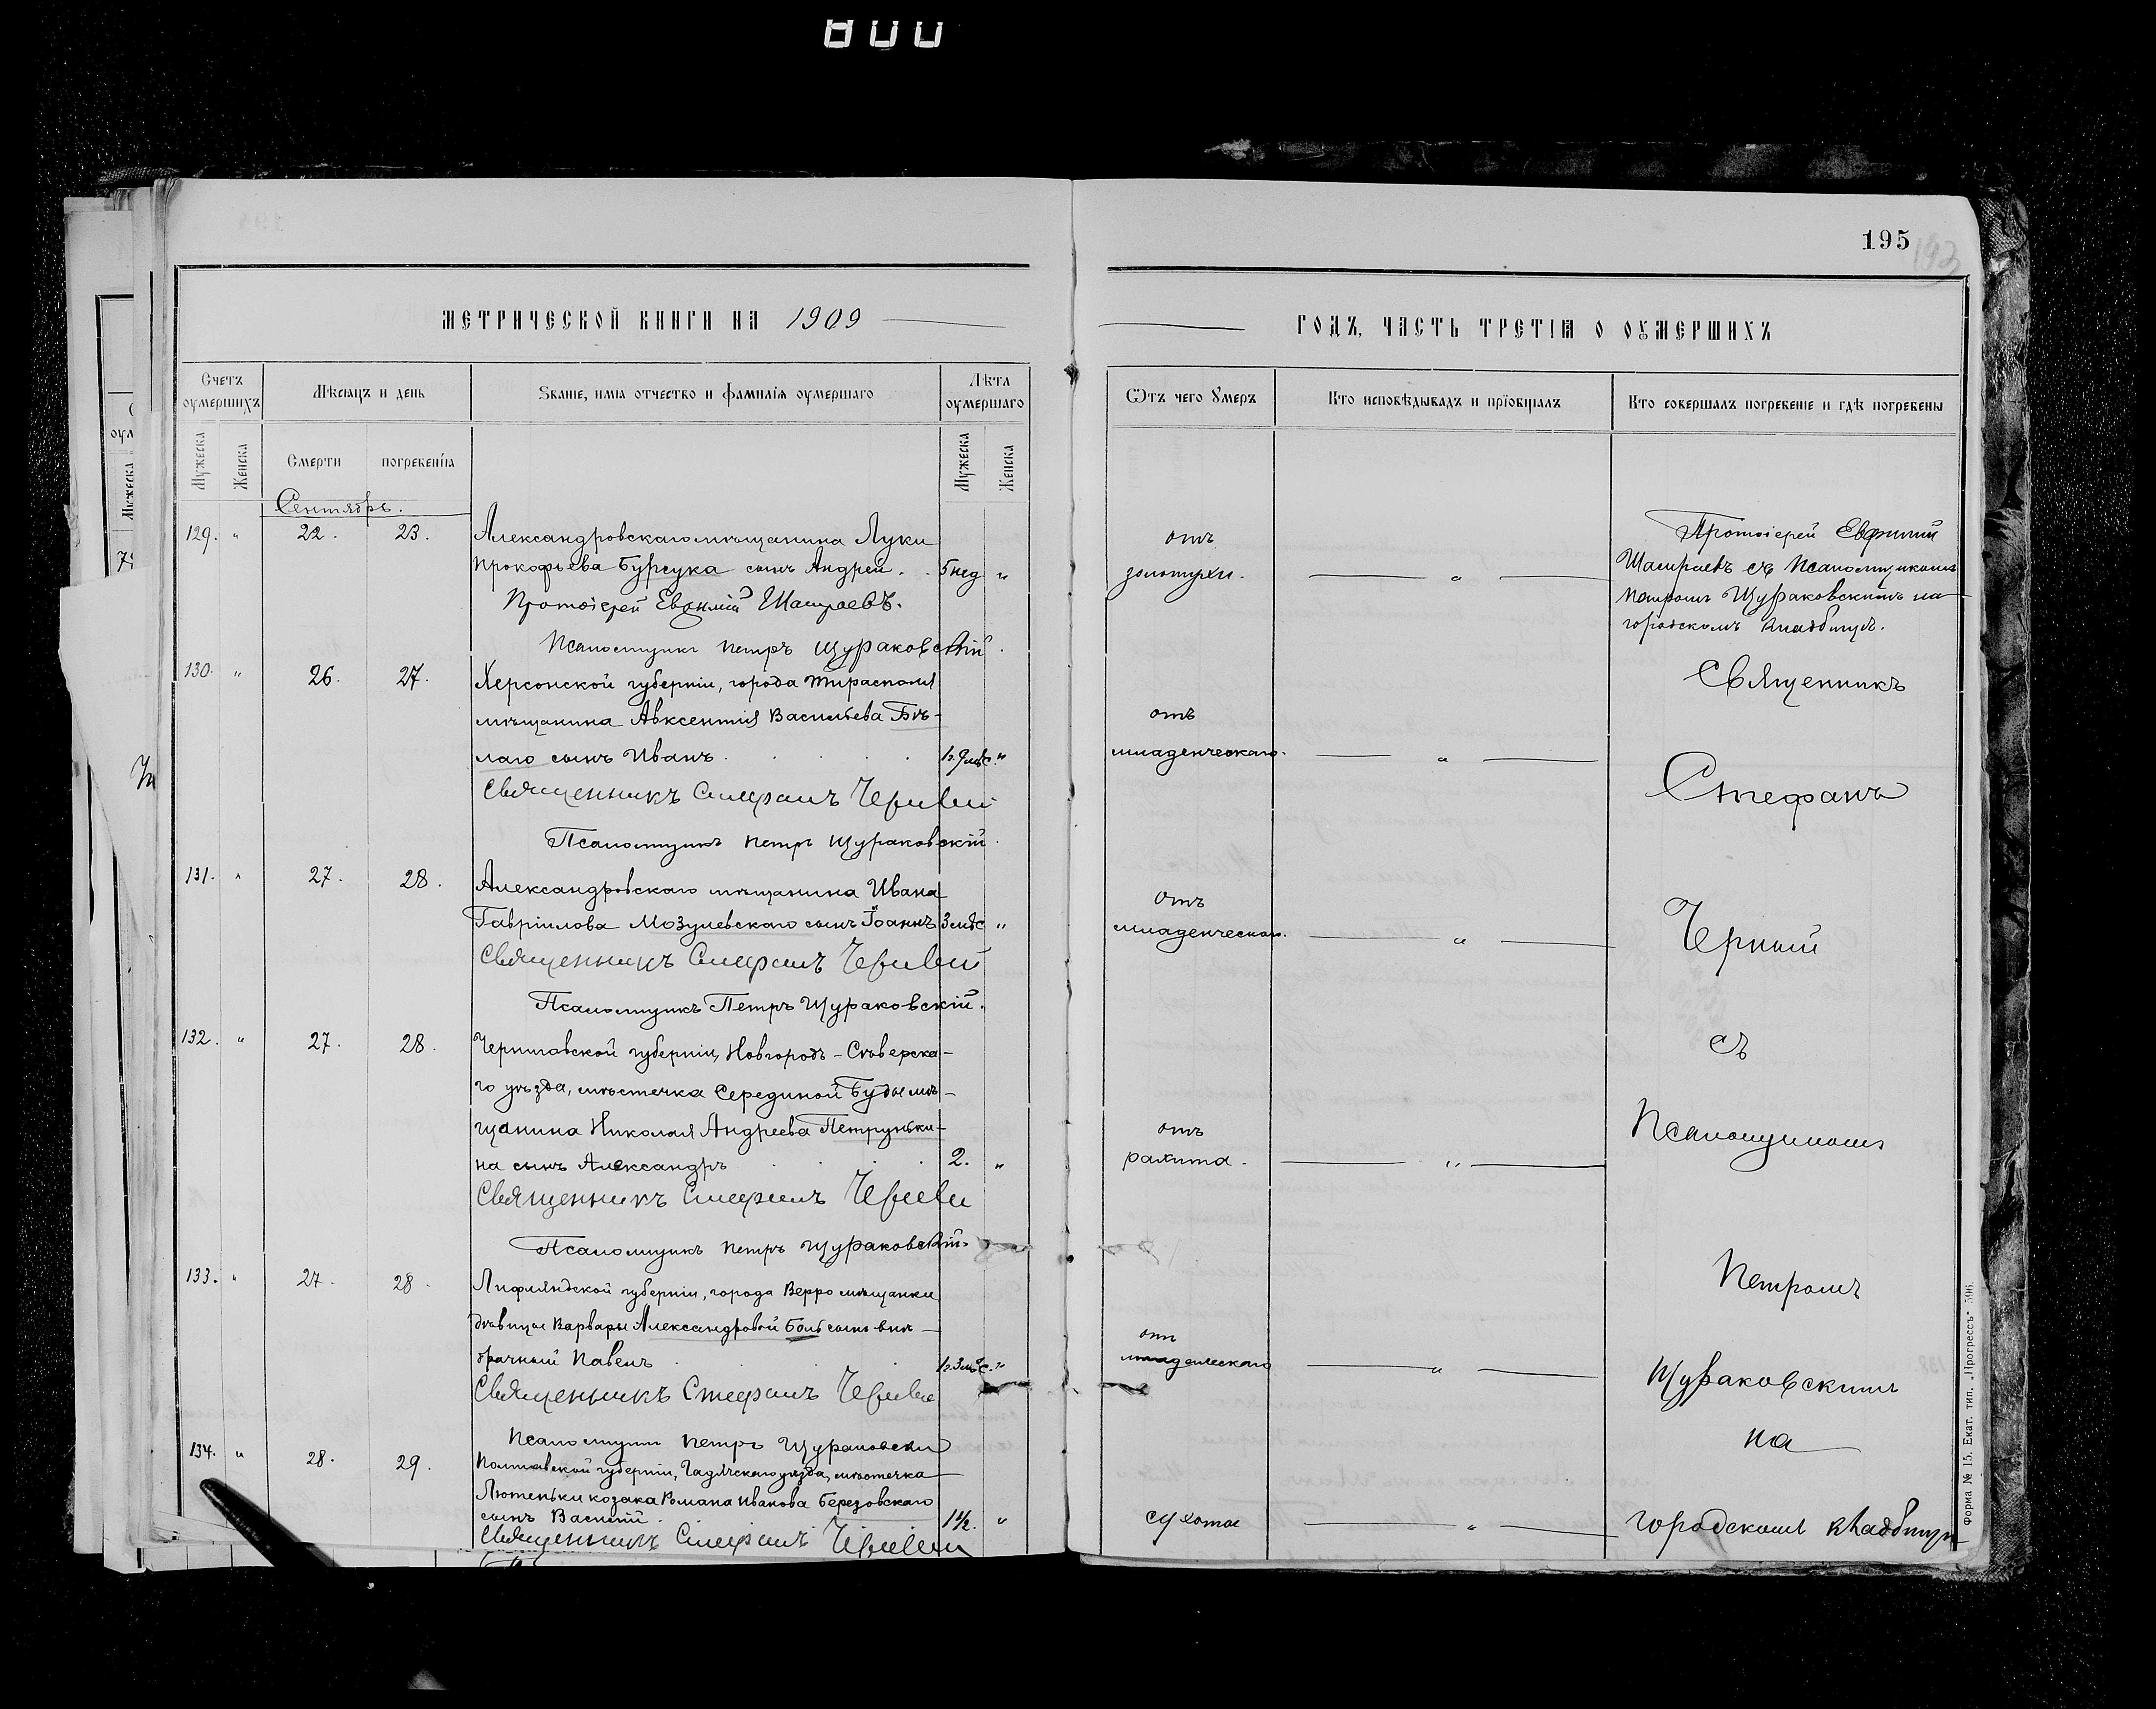 800
195
193
МЕТРИЧЕСКОЙ КНИГИ НА 1909
ГОДЪ, ЧАСТЬ ТРЕТІЯ О ОУМЕРШИХЪ
Счетъ оумершихъ
Мѣсяцъ и день
Званіе, имя отчество и фамилія оумершаго
Лѣта оумершаго
Отъ чего умеръ
Кто исповѣдывалъ и пріобщалъ
Кто совершалъ погребеніе и гдѣ погребены
Мужеска
Женска
Смерти
погребенія
Мужеска
Женска
Сентябрь.
129. " 22. 23. Александровскаго мѣщанина Луки
Прокофьева Бурсука сынъ Андрей . . 5 нед "
Протоіерей Евфимій
Псаломщикъ Петръ Щураковскій.
отъ
золотухи. — " —
Протоіерей Евфимій
съ Псаломщикомъ
Петромъ Щураковскимъ на
городскомъ кладбищѣ.
130. " 26. 27. Херсонской губерніи, города Тирасполя
мѣщанина Авксентія Васильева Бѣ-
лаго сынъ Иванъ . . . . 1г. 9 мѣс. "
Священникъ Стефанъ Черный
Псаломщикъ Петръ Щураковскій.
отъ
младенческаго. — " —
131. " 27. 28. Александровскаго мѣщанина Ивана
Гавріилова Мозулевскаго сынъ Іоаннъ 3 мѣс "
Священникъ Стефанъ Черный
Псаломщикъ Петръ Щураковскій.
отъ
младенческаго. — " —
132. " 27. 28. Черниговской губерніи, Новгородъ-Сѣверска-
го уѣзда, мѣстечка Серединой Буды мѣ-
щанина Николая Андреева Петруньки-
на сынъ Александръ . . . 2. "
Священникъ Стефанъ Черный
Псаломщикъ Петръ Щураковскій.
отъ
рахита. — " —
133. " 27. 28. Лифляндской губерніи, города Верро мѣщанки
дѣвицы Варвары Александровой Боль сынъ внѣ-
брачный Павелъ . . . 1г. 3 мѣс. "
Священникъ Стефанъ Черный
Псаломщикъ Петръ Щураковскій
отъ
младенческаго — " —
134. " 28. 29. Полтавской губерніи, Гадячскаго уѣзда, мѣстечка
Лютеньки козака Романа Иванова Березовскаго
сынъ Василій . 1½. "
Священникъ Стефанъ Черный
сухоты — " —
Священникъ
Стефанъ
Черный
съ
Псаломщикомъ
Петромъ
Щураковскимъ
на
городскомъ кладбищѣ
Форма № 15. Екат. тип. „Прогрессъ"